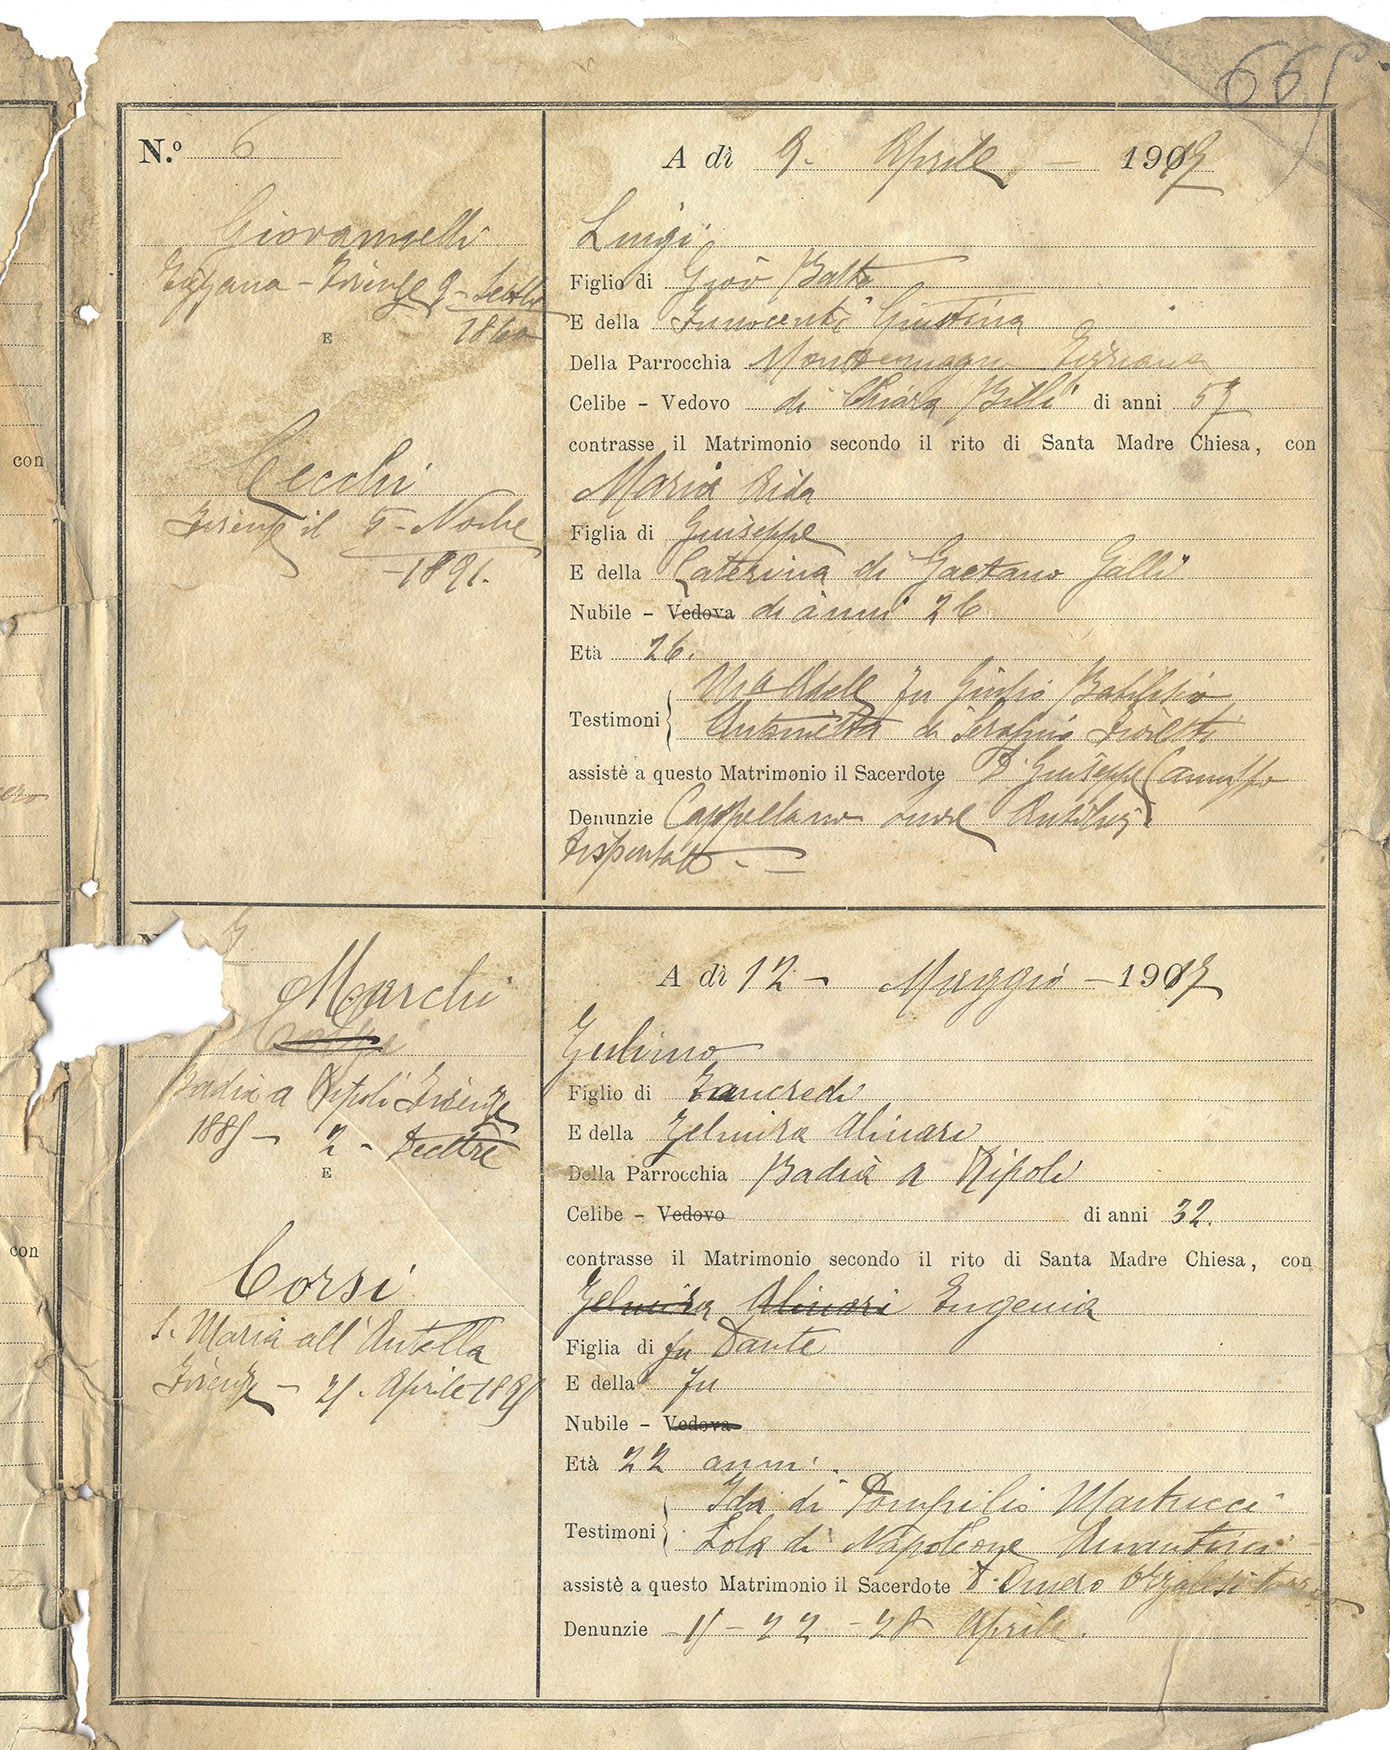 665
N.º 6
A dì 9. Aprile 1917
Giovannelli
Firenze 9
1860
E
Cecchi
Firenze il 5 - Nobre
- 1891.
Luigi
Figlio di Giov Batta
E della Innocenti Giustina
Della Parrocchia
Celibe - Vedovo di Chiara Billi di anni 57
contrasse il Matrimonio secondo il rito di Santa Madre Chiesa, con
Maria Aida
Figlia di Giuseppe
E della Caterina di Gaetano Galli
Nubile - Vedova di anni 26
Età 26.
Adele fu Giulio
Testimoni
Antonietta di Serafino Fioretti
assistè a questo Matrimonio il Sacerdote D. Giuseppe
Denunzie Cappellano
Dispensato
con
Marchi
Badia a Ripoli Firenze
1885 - 2 - Decbre
E
Corsi
S. Maria all'Antella
Firenze - 25. Aprile 1895
A dì 12 - Maggio - 1917
Zulimo
Figlio di Tancredi
E della Zelmira Alinari
Della Parrocchia Badia a Ripoli
Celibe - Vedovo di anni 32.
contrasse il Matrimonio secondo il rito di Santa Madre Chiesa, con
Zelmira Alinari Eugenia
Figlia di fu Dante
E della fu
Nubile - Vedova
Età 22 anni.
Ida di Pompilio Martucci
Testimoni
Lola di Napoleone
assistè a questo Matrimonio il Sacerdote D. Omero
Denunzie 15 - 22 - 28 Aprile.
con